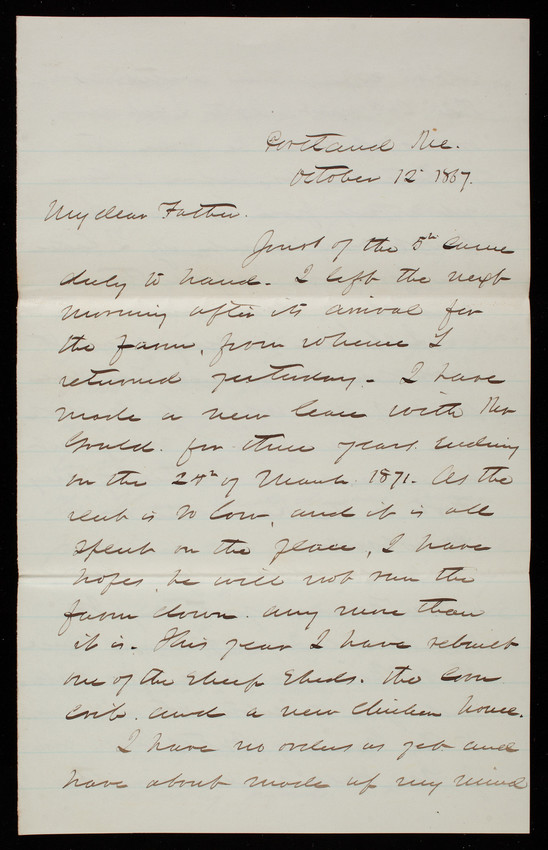 Portland Me.
October 12th 1867.
My dear Father.
Yours of the 5th came
duly to hand. I left the next
morning after its arrival for
the farm, from whence I
returned yesterday. I have
made a new lease with Mr
Gould. for three years ending
on the 24th of March 1871. As the
rent is so low, and it is all
spent on the place, I have
hopes, he will not run the
farm down any more than
it is. This year I have rebuilt
one of the Sheep Sheds. the Corn
Crib. and a new Chicken house.
I have no orders as yet and
have about made up my mind